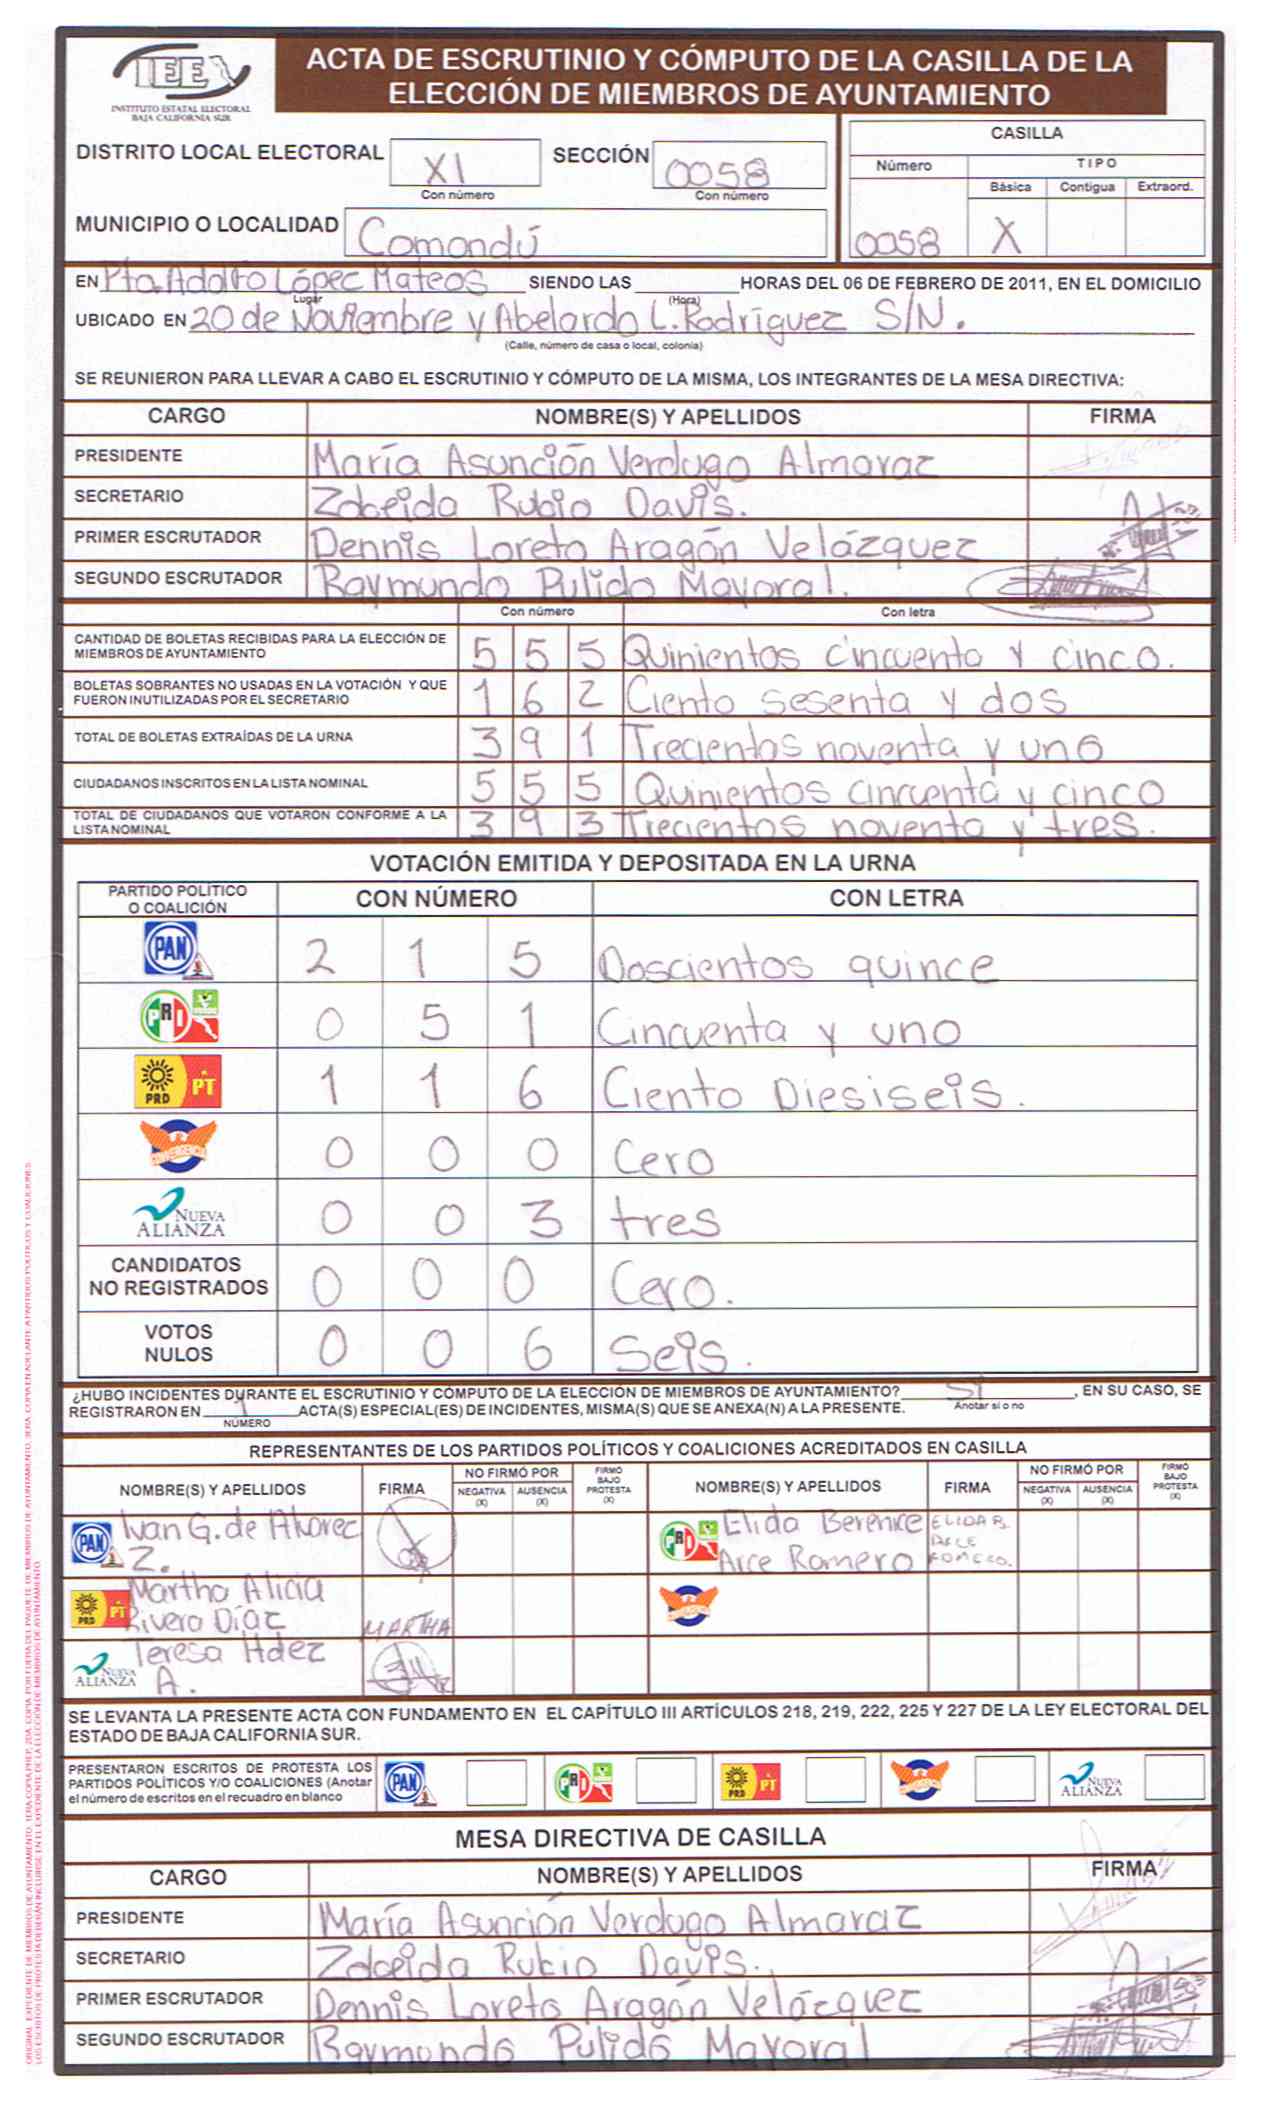 IEE
INSTITUTO ESTATAL ELECTORAL
BAJA CALIFORNIA SUR
ACTA DE ESCRUTINIO Y CÓMPUTO DE LA CASILLA DE LA
ELECCIÓN DE MIEMBROS DE AYUNTAMIENTO
DISTRITO LOCAL ELECTORAL XI SECCIÓN 0058
Con número Con número
CASILLA
Número TIPO
Básica Contigua Extraord.
0058 X
MUNICIPIO O LOCALIDAD Comondú
EN Pto. Adolfo López Mateos SIENDO LAS HORAS DEL 06 DE FEBRERO DE 2011, EN EL DOMICILIO
Lugar (Hora)
UBICADO EN 20 de Noviembre y Abelardo L. Rodríguez S/N.
(Calle, número de casa o local, colonia)
SE REUNIERON PARA LLEVAR A CABO EL ESCRUTINIO Y CÓMPUTO DE LA MISMA, LOS INTEGRANTES DE LA MESA DIRECTIVA:
CARGO NOMBRE(S) Y APELLIDOS FIRMA
PRESIDENTE María Asunción Verdugo Almaraz
SECRETARIO Zobeida Rubio Davis.
PRIMER ESCRUTADOR Dennis Loreto Aragón Velázquez
SEGUNDO ESCRUTADOR Raymundo Pulido Mayoral.
Con número Con letra
CANTIDAD DE BOLETAS RECIBIDAS PARA LA ELECCIÓN DE
MIEMBROS DE AYUNTAMIENTO 5 5 5 Quinientos cincuenta y cinco.
BOLETAS SOBRANTES NO USADAS EN LA VOTACIÓN Y QUE
FUERON INUTILIZADAS POR EL SECRETARIO 1 6 2 Ciento sesenta y dos
TOTAL DE BOLETAS EXTRAÍDAS DE LA URNA 3 9 1 Trecientos noventa y uno
CIUDADANOS INSCRITOS EN LA LISTA NOMINAL 5 5 5 Quinientos cincuenta y cinco
TOTAL DE CIUDADANOS QUE VOTARON CONFORME A LA
LISTA NOMINAL 3 9 3 Trecientos noventa y tres.
VOTACIÓN EMITIDA Y DEPOSITADA EN LA URNA
PARTIDO POLÍTICO
O COALICIÓN CON NÚMERO CON LETRA
PAN 2 1 5 Doscientos quince
PRI 0 5 1 Cincuenta y uno
PRD PT 1 1 6 Ciento Diesiseis.
CONVERGENCIA 0 0 0 Cero
NUEVA ALIANZA 0 0 3 tres
CANDIDATOS
NO REGISTRADOS 0 0 0 Cero.
VOTOS
NULOS 0 0 6 Seis.
¿HUBO INCIDENTES DURANTE EL ESCRUTINIO Y CÓMPUTO DE LA ELECCIÓN DE MIEMBROS DE AYUNTAMIENTO? SI , EN SU CASO, SE
REGISTRARON EN 1 ACTA(S) ESPECIAL(ES) DE INCIDENTES, MISMA(S) QUE SE ANEXA(N) A LA PRESENTE. Anotar sí o no
NÚMERO
REPRESENTANTES DE LOS PARTIDOS POLÍTICOS Y COALICIONES ACREDITADOS EN CASILLA
NOMBRE(S) Y APELLIDOS FIRMA NO FIRMÓ POR NEGATIVA (X) AUSENCIA (X) FIRMÓ BAJO PROTESTA (X) NOMBRE(S) Y APELLIDOS FIRMA NO FIRMÓ POR NEGATIVA (X) AUSENCIA (X) FIRMÓ BAJO PROTESTA (X)
PAN Ivan G. de Alvarez
Z.
PRI Elida Berenice
Arce Romero ELIDA B.
ARCE
ROMERO.
PRD PT Martha Alicia
Rivera Díaz MARTHA
NUEVA ALIANZA Teresa Hdez
A.
SE LEVANTA LA PRESENTE ACTA CON FUNDAMENTO EN EL CAPÍTULO III ARTÍCULOS 218, 219, 222, 225 Y 227 DE LA LEY ELECTORAL DEL
ESTADO DE BAJA CALIFORNIA SUR.
PRESENTARON ESCRITOS DE PROTESTA LOS
PARTIDOS POLÍTICOS Y/O COALICIONES (Anotar
el número de escritos en el recuadro en blanco
PAN PRI PRD PT NUEVA ALIANZA
MESA DIRECTIVA DE CASILLA
CARGO NOMBRE(S) Y APELLIDOS FIRMA
PRESIDENTE María Asunción Verdugo Almaraz
SECRETARIO Zobeida Rubio Davis.
PRIMER ESCRUTADOR Dennis Loreto Aragón Velázquez
SEGUNDO ESCRUTADOR Raymundo Pulido Mayoral
ORIGINAL: EXPEDIENTE DE MIEMBROS DE AYUNTAMIENTO. 1ERA. COPIA PREP, 2DA. COPIA POR FUERA DEL PAQUETE DE MIEMBROS DE AYUNTAMIENTO, 3ERA. COPIA EN ADELANTE A PARTIDOS POLÍTICOS Y COALICIONES
LOS ESCRITOS DE PROTESTA DEBERÁN INCLUIRSE EN EL EXPEDIENTE DE LA ELECCIÓN DE MIEMBROS DE AYUNTAMIENTO.